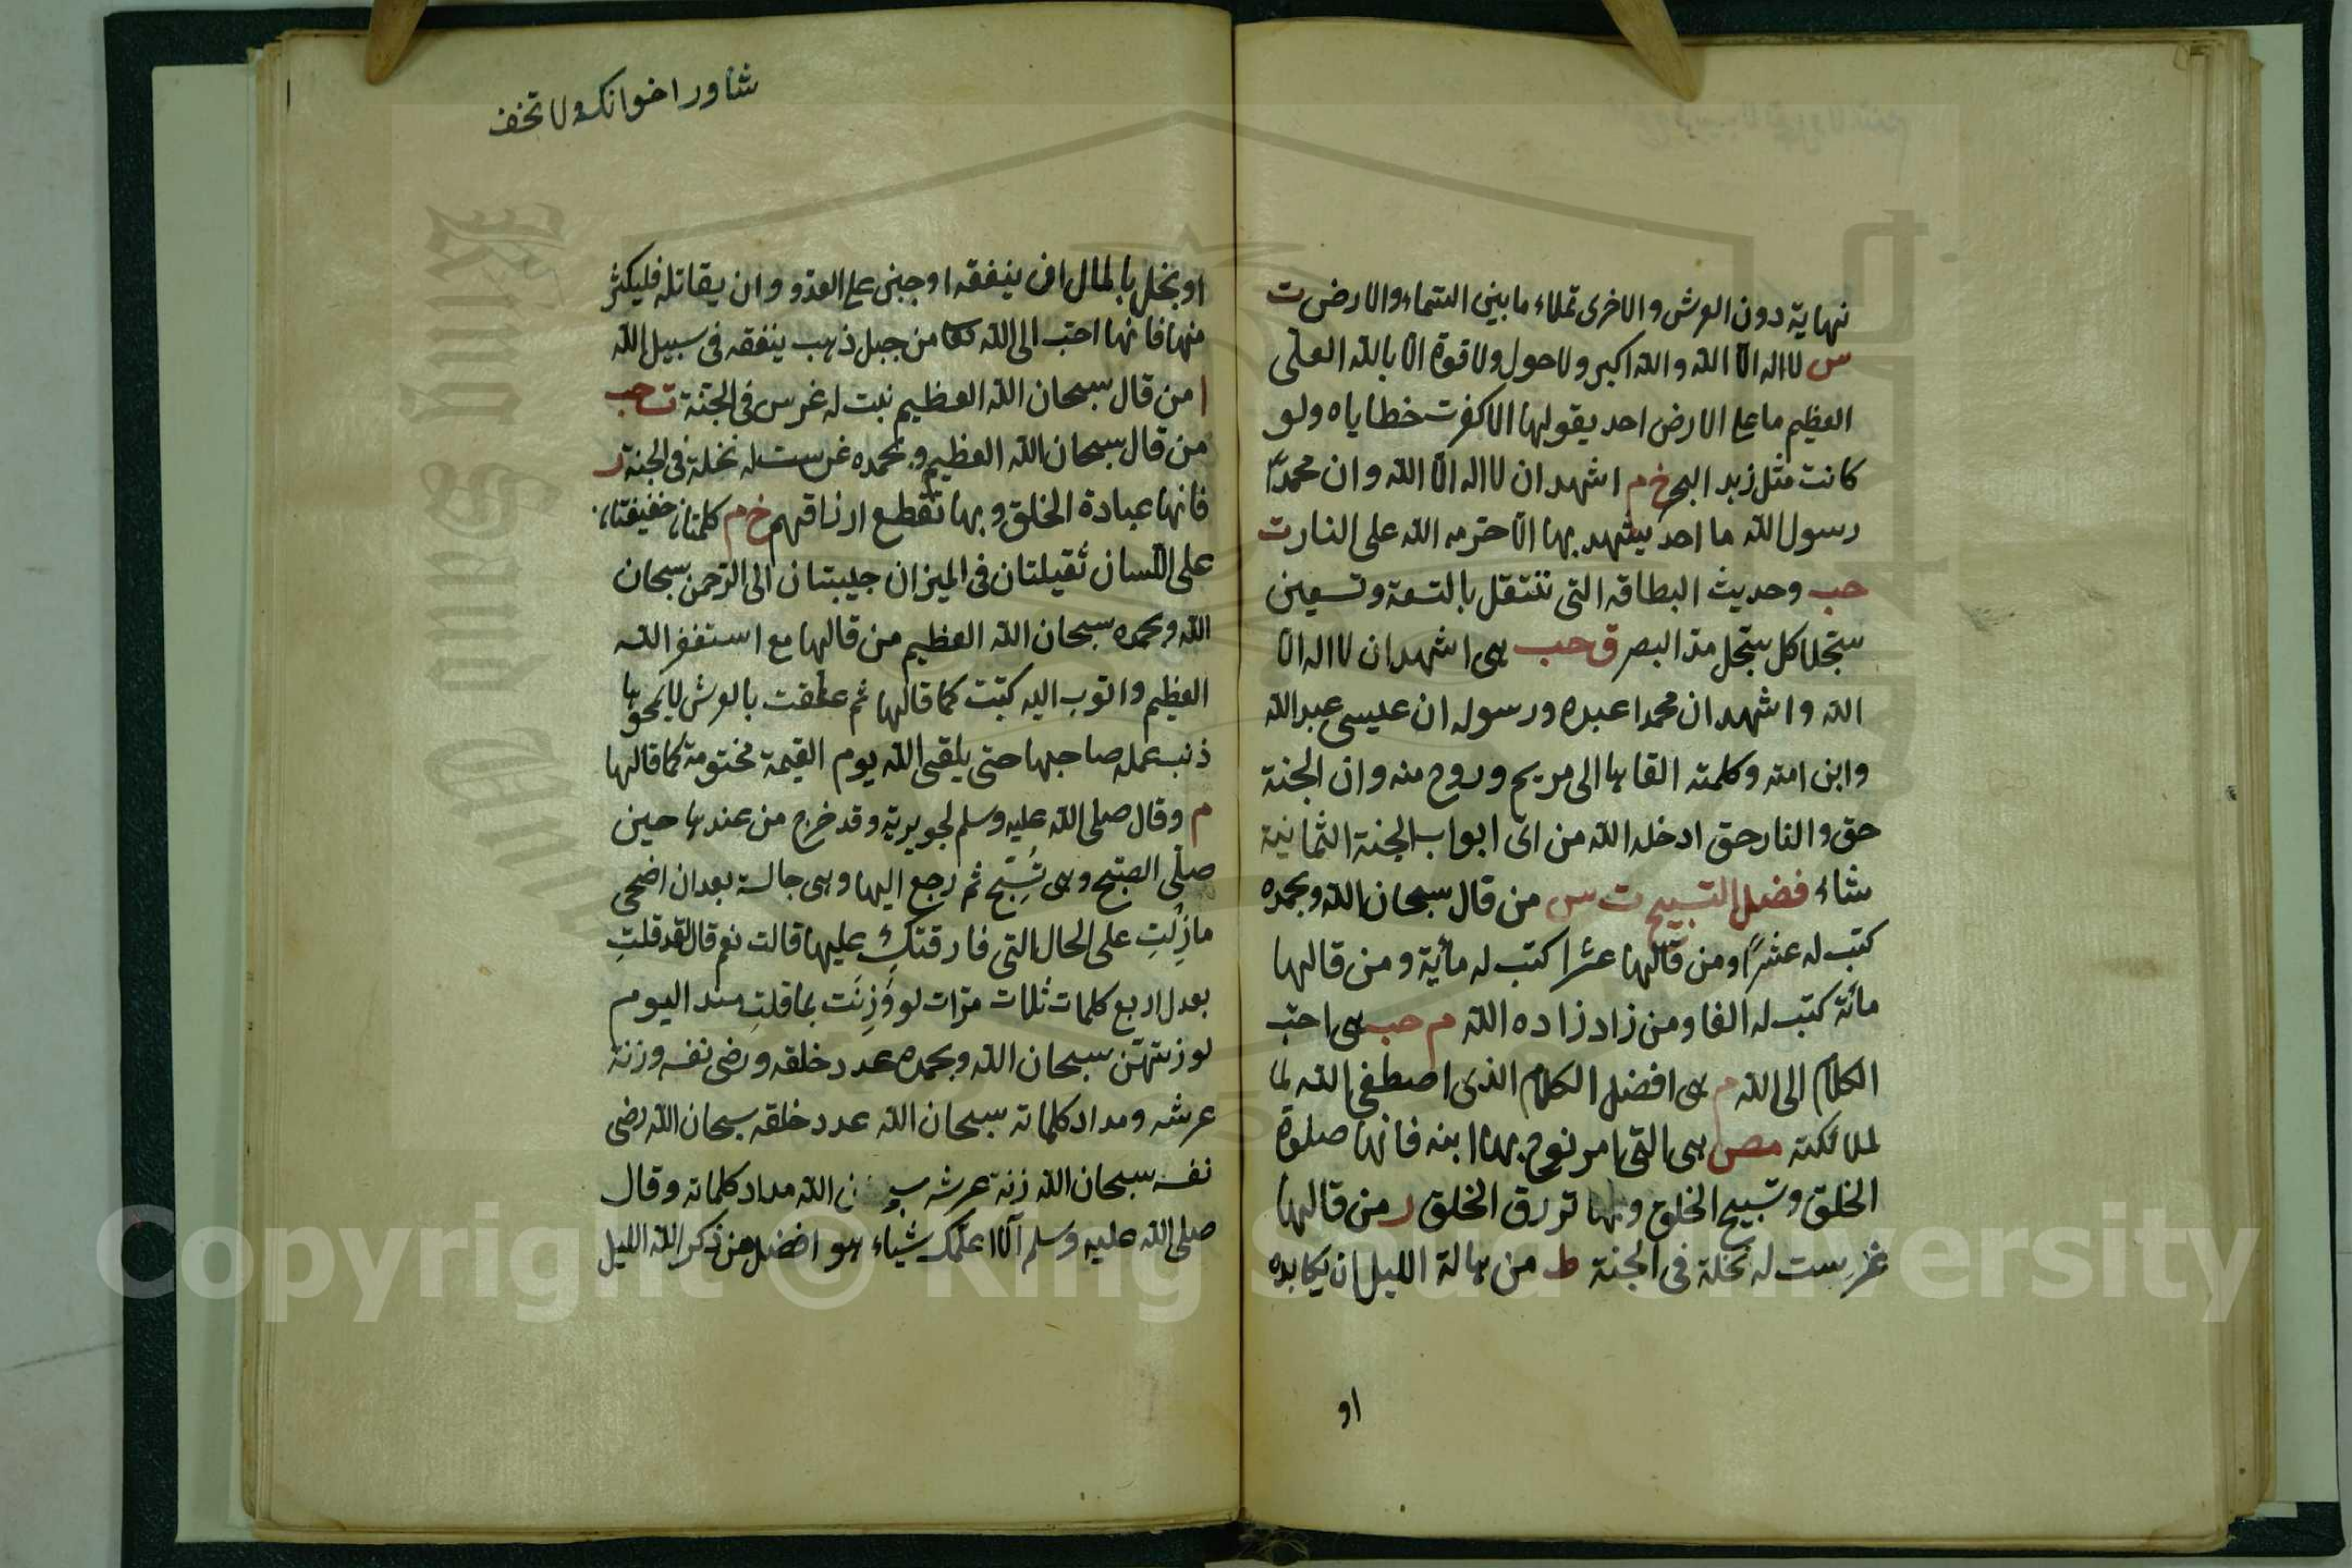 نهاية دون العرش والاخرى تملاء ما بين السماء والارض ت
س لا اله الا الله والله اكبر ولا حول ولا قوة الا بالله العلى
العظيم ما على الارض احد يقولها الا كفرت خطاياه ولو
كانت مثل زبد البحر خ م اشهد ان لا اله الا الله وان محمدا
رسول الله ما احد يشهد بها الا حرمه الله على النار ت
حب وحديث البطاقه التى تثقل بالتسعة وتسعين
سجلا كل سجل مد البصر ق حب هى اشهد ان لا اله الا
الله واشهد ان محمدا عبده ورسوله ان عيسى عبد الله
وابن امته وكلمته القاها الى مريم وروح منه وان الجنة
حق والنار حق ادخله الله من اى ابواب الجنة الثمانية
شاء فضل التسبيح ت س من قال سبحان الله وبحمده
كتب له عشرا ومن قالها عشرا كتب له مأية ومن قالها
مأته كتب له الفا ومن زاد زاده الله م حب هى احب
الكلام الى الله م هى افضل الكلام الذى اصطفى الله لما
لملائكته مص هى التى امر نوح بها ابنه فانها صلوة
الخلق وتسبيح الخلق وبها ترزق الخلق ر من قالها
غرست له نخلة فى الجنة ط من هالة الليل ان يكابده
او
شاور اخوانك ولا تخف
او بخل بالمال ان ينفقه او جبن على العدو وان يقاتله فليكثر
منها فانها احب الى الله من جبل ذهب ينفقه فى سبيل الله
ا من قال سبحان الله العظيم نبت له غرس فى الجنة ت حب
من قال سبحان الله العظيم وبحمده غرست له نخلة فى الجنة ر
فانها عبادة الخلق وبها تقطع ارزاقهم خ م كلمتان خفيفتان
على اللسان ثقيلتان فى الميزان حبيبتان الى الرحمن سبحان
الله وبحمده سبحان الله العظيم من قالها مع استغفر الله
العظيم واتوب اليه كتبت كما قالها ثم علقت بالعرش لا يمحوها
ذنب عمله صاحبها حتى يلقى الله يوم القيمة مختومة كما قالها
م وقال صلى الله عليه وسلم لجويرية وقد خرج من عندها حين
صلى الصبح وهى تسبح ثم رجع اليها وهى جالسة بعد ان اضحى
مازلت على الحال التى فارقتك عليها قالت نعم قال لقد قلت
بعدك اربع كلمات ثلاث مرات لو وزنت بما قلت منذ اليوم
لوزنتهن سبحان الله وبحمده عدد خلقه ورضى نفسه وزنة
عرشه ومداد كلماته سبحان الله عدد خلقه سبحان الله رضى
نفسه سبحان الله زنة عرشه الله مداد كلماته وقال
صلى الله عليه وسلم الا اعلمك شياء هو افضل من ذكر الله الليل
Copyright © King Saud University